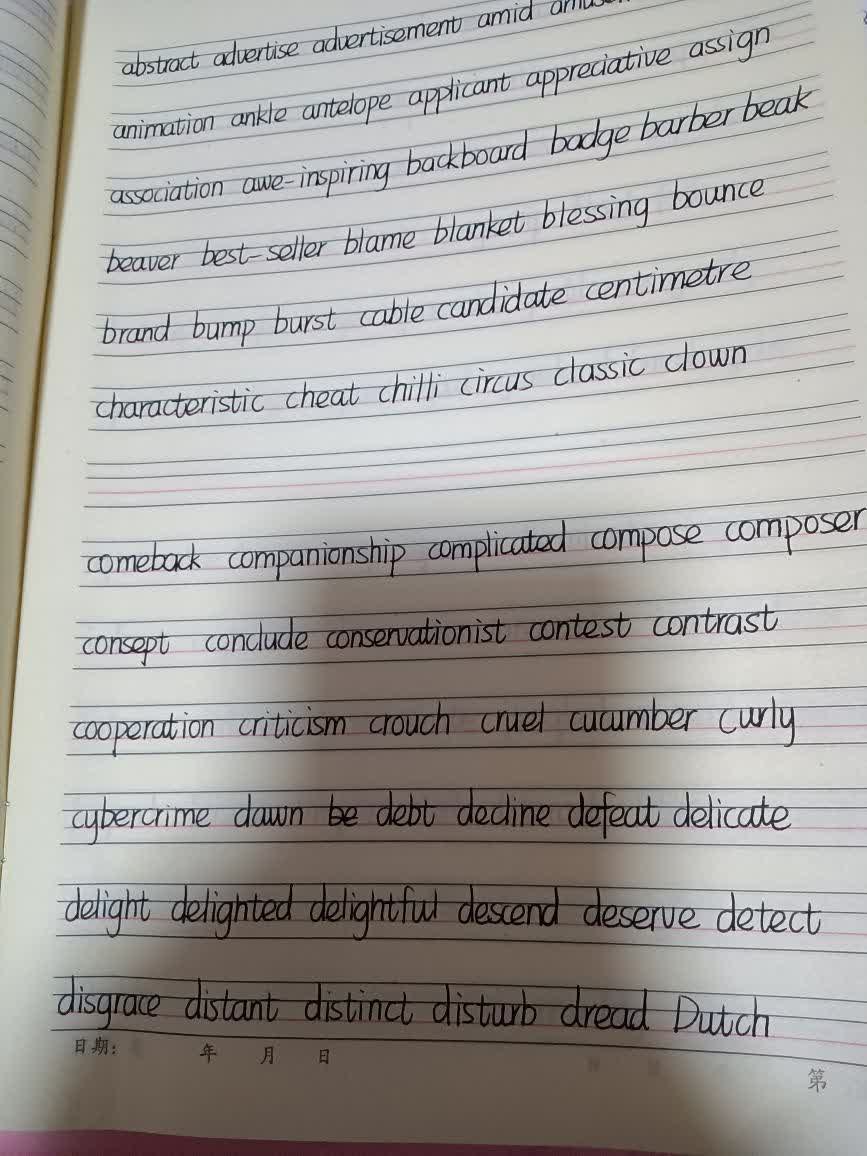 abstract advertise advertisement amid
animation ankle antelope applicant appreciative assign
association awe-inspiring backboard badge barber beak
beaver best-seller blame blanket blessing bounce
brand bump burst cable candidate centimetre
characteristic cheat chilli circus classic clown
comeback companionship complicated compose composer
consept conclude conservationist contest contrast
cooperation criticism crouch cruel cucumber curly
cybercrime dawn be debt decline defeat delicate
delight delighted delightful descend deserve detect
disgrace distant distinct disturb dread Dutch
日期： 年 月 日
第